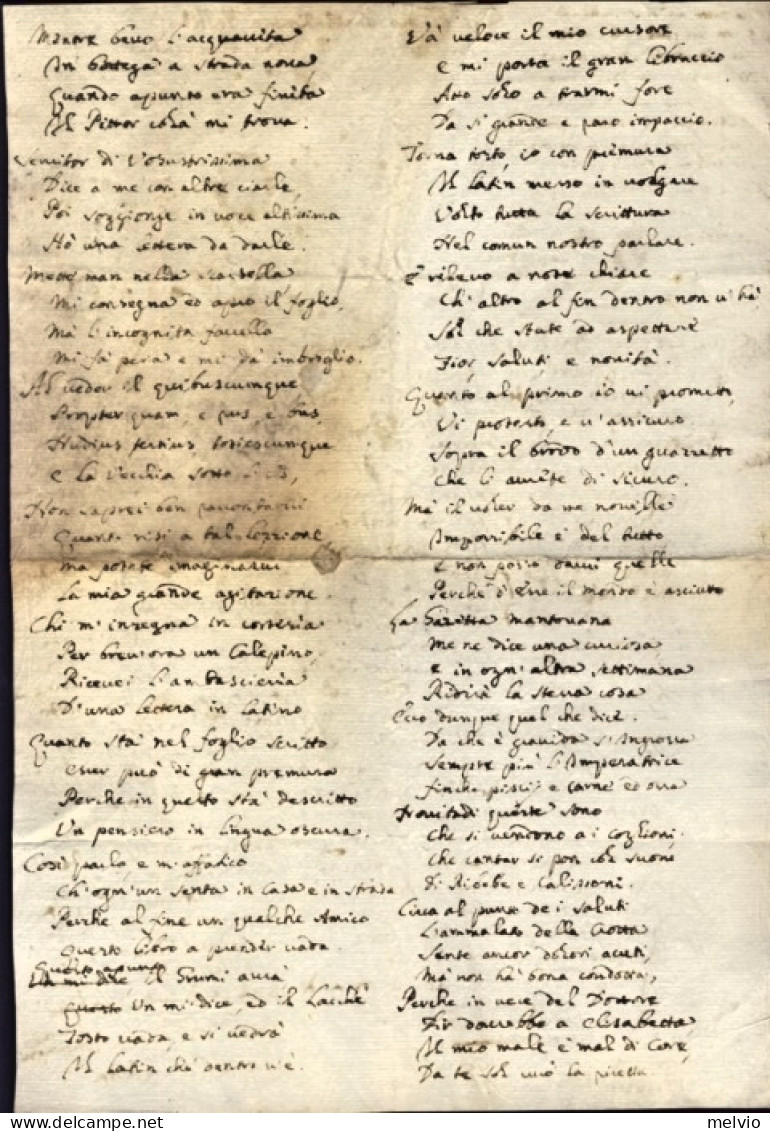 Mentre bevo l'acquavita
In bottega a strada nova
Quando apunto era finita
Il Pittor colà mi trova.
Servitor di Vosustrissima
Dice a me con altre ciarle,
Poi soggionge in voce altissima
Hò una lettera da darle.
Mette man nella scarsella
Mi consegna ed apro il foglio,
Mà l'incognita favella
Mi fà pena e mi dà imbroglio.
Al veder il quibuscumque
Propter quam, e qus, e bus,
Nudius tertius totiescumque
E la Vecchia sotto
Non saprei ben raccontarvi
Quanto risi a tal lezzione,
Ma potete imaginarvi
La mia grande agitazione.
Chi m'insegna in corteria
Per brev'ora un Calepino,
Ricevei l'ambascieria
D'una lettera in latino
Quanto stà nel foglio scritto
Esser può di gran premura
Perche in questo stà descritto
Un pensiero in lingua oscura.
Così parlo, e m'affatico
Ch'ogn'un senta in Casa e in strada
Perche al fine un qualche Amico
Questo libro a prender vada.
Il Grumi avrà
Un mi dice, ed il Lacchè
Tosto vada, e si vedrà
Il latin che dentro v'è.
Và veloce il mio cursore
E mi porta il gran libraccio
Atto solo a trarmi fore
Da sì grande e raro impaccio.
Torna tosto, io con premura
Il latin messo in volgare
Volto tutta la scrittura
Nel comun nostro parlare.
E rilevo a note chiare
Ch'altro al fin dentro non v'hà
Sol che state ad aspettare
Fior, saluti e novità.
Quanto al primo io vi prometto,
Vi protesto, e v'assicuro
Sopra il brodo d'un guazzetto
Che li avrete di sicuro.
Mà il voler da me novelle
Impossibile è del tutto
E non posso darvi quelle
Perche d'esse il mondo è asciutto
La Gazetta mantovana
Me ne dice una curiosa
E in ogn'altra settimana
Ridirà la stessa cosa
Ecco dunque quel che dice.
Da che è gravida s'ingrossa
Sempre più l'Imperatrice
Finche pisci e carne ed ossa
Novità di queste sono
Che si vendono a i Coglioni,
Che cantar si pon col suono
Di Ribebe e Calissoni.
Circa al punto de i saluti
L'ammalato della Gotta
Sente ancor dolori acuti,
Mà non hà bona condotta,
Perche in vece del Dottore
Dir dovrebbe a Elisabetta
Il mio male è mal di Core,
Da te sol vuò la ricetta
melvio